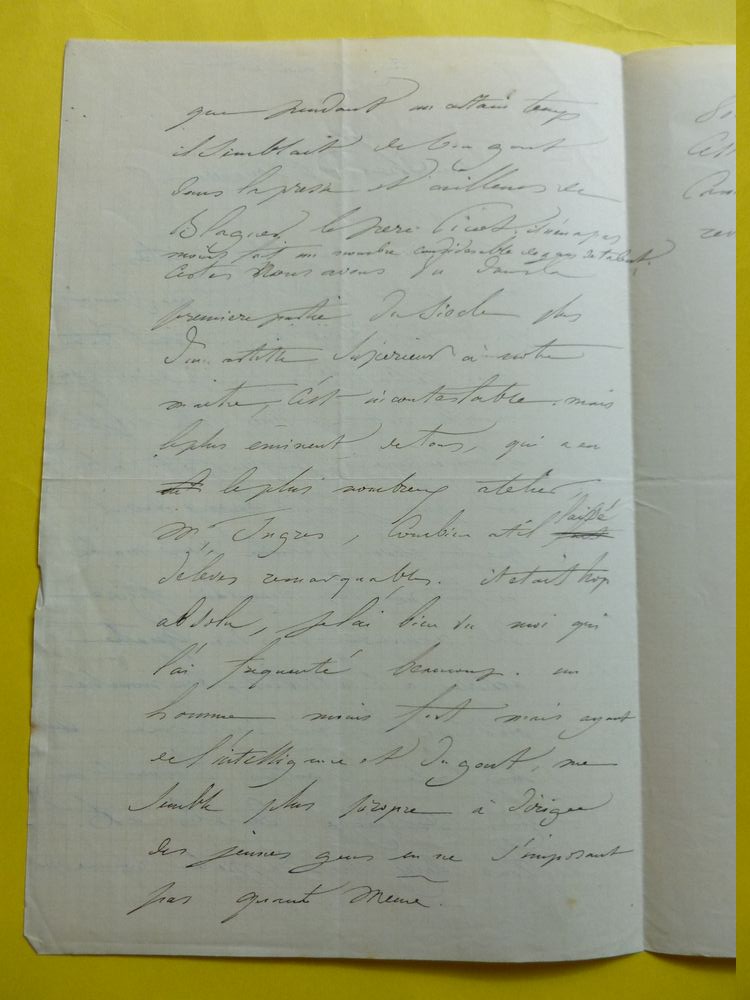 que pendant un certain temps
il semblait de bon gout
dans la presse et d'ailleurs de
Blaguer le pere Picot. Il n'en a pas
moins fait un nombre considérable de gens de talent.
Certes Nous avons eu dans la
premiere partie du Siecle plus
d'un artiste Superieur à notre
maitre, C'est incontestable. mais
le plus eminent de tous, qui a eu
le plus nombreux atelier,
Mr Ingres, Combien a t'il laissé
d'élèves remarquables. il etait trop
absolu, je l'ai bien vu moi qui
l'ai frequenté beaucoup. un
homme moins fort mais ayant
de l'intelligence et du gout, me
semble plus propre à diriger
des jeunes gens en ne s'imposant
pas quand même.
So
Cas
rev